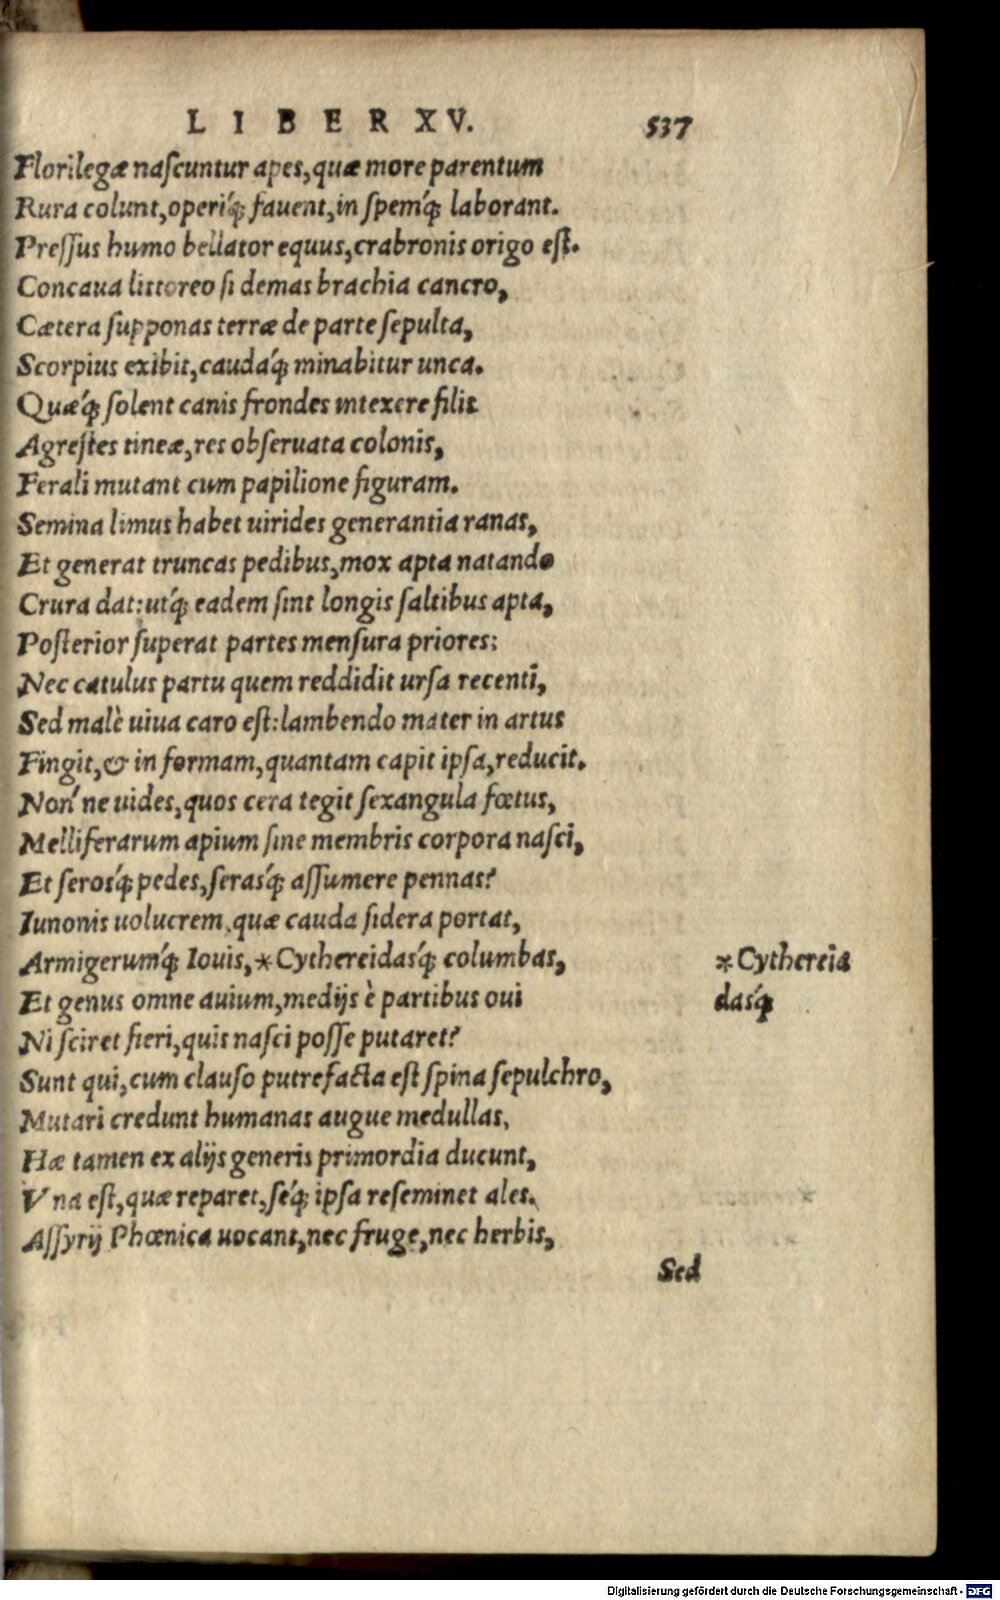 LIBER XV. 537
Florilegæ naſcuntur apes, quæ more parentum
Rura colunt, operiq́; fauent, in ſpemq́; laborant.
Preſſus humo bellator equus, crabronis origo eſt.
Concaua littoreo ſi demas brachia cancro,
Cætera ſupponas terræ de parte ſepulta,
Scorpius exibit, caudaq́; minabitur unca.
Quæq́; ſolent canis frondes intexere filis
Agreſtes tineæ, res obſeruata colonis,
Ferali mutant cum papilione figuram.
Semina limus habet uirides generantia ranas,
Et generat truncas pedibus, mox apta natando
Crura dat: utq́; eadem ſint longis ſaltibus apta,
Poſterior ſuperat partes menſura priores:
Nec catulus partu quem reddidit urſa recenti,
Sed malè uiua caro eſt: lambendo mater in artus
Fingit, & in formam, quantam capit ipſa, reducit.
Non' ne uides, quos cera tegit ſexangula fœtus,
Melliferarum apium ſine membris corpora naſci,
Et ſerosq́; pedes, ſerasq́; aſſumere pennas?
Iunonis uolucrem, quæ cauda ſidera portat,
Armigerumq́; Iouis, *Cythereidasq́; columbas,
Et genus omne auium, medijs è partibus oui
Ni ſciret fieri, quis naſci poſſe putaret?
Sunt qui, cum clauſo putrefacta eſt ſpina ſepulchro,
Mutari credunt humanas angue medullas,
Hæ tamen ex alijs generis primordia ducunt,
Vna eſt, quæ reparet, ſeq́; ipſa reſeminet ales.
Aſſyrij Phœnica uocant, nec fruge, nec herbis,
Sed
*Cythereia
dasq́;
Digitalisierung gefördert durch die Deutsche Forschungsgemeinschaft - DFG